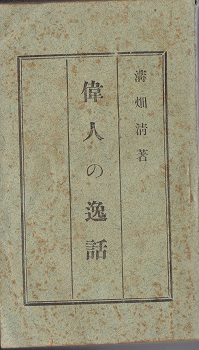 溝畑清著
偉人の逸話